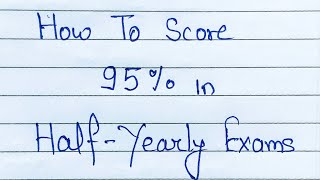 How To Score
95% in
Half-Yearly Exams